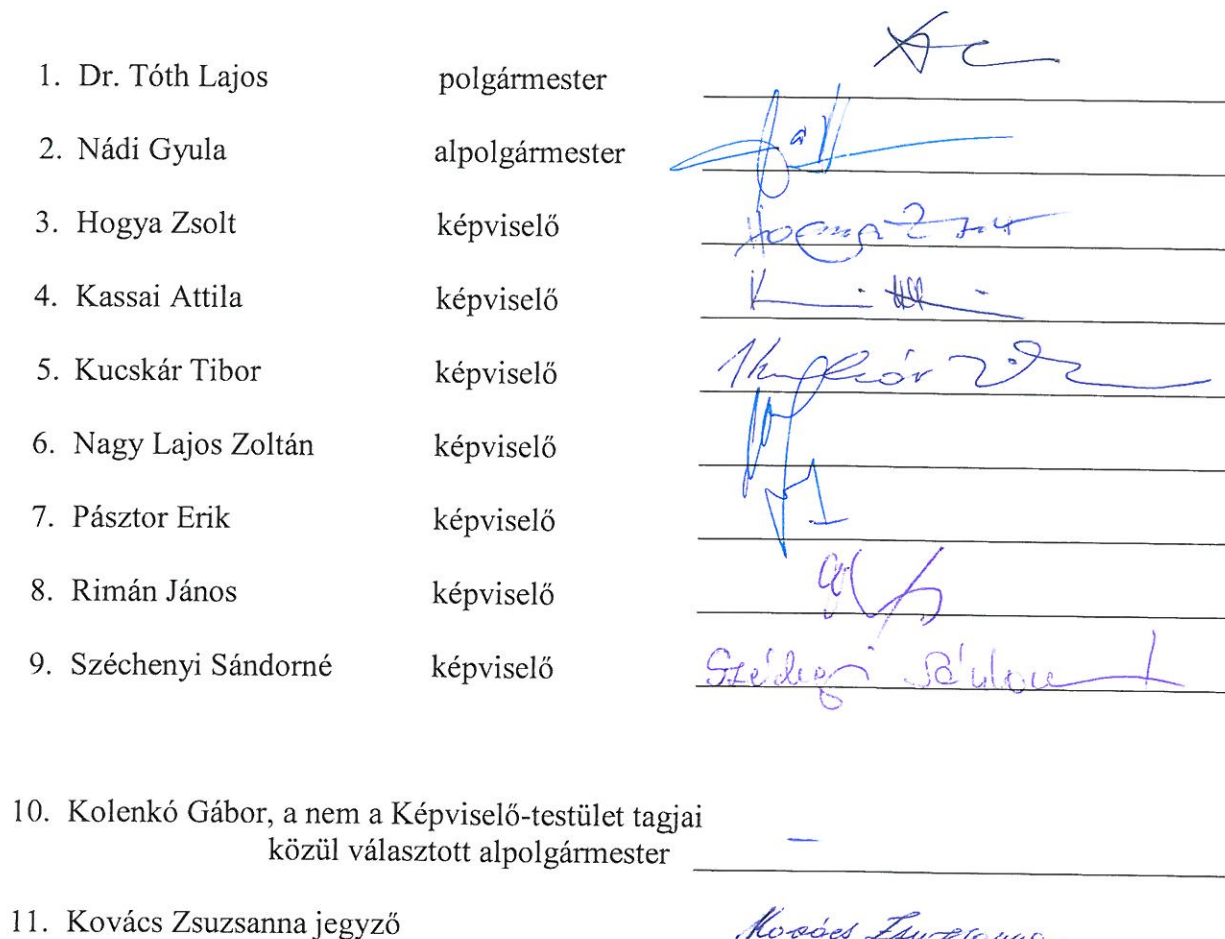 1. Dr. Tóth Lajos polgármester
2. Nádi Gyula alpolgármester
3. Hogya Zsolt képviselő Hogya Zsolt
4. Kassai Attila képviselő
5. Kucskár Tibor képviselő
6. Nagy Lajos Zoltán képviselő
7. Pásztor Erik képviselő
8. Rimán János képviselő
9. Széchenyi Sándorné képviselő
10. Kolenkó Gábor, a nem a Képviselő-testület tagjai
közül választott alpolgármester –
11. Kovács Zsuzsanna jegyző Kovács Zsuzsanna